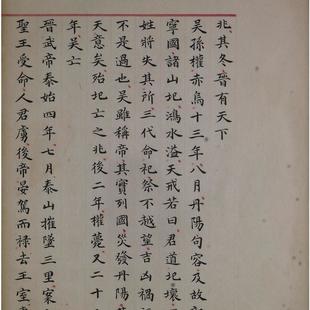 兆其冬晉有天下
吳孫權赤烏十三年八月丹陽句容及故
寧國諸山圮鴻水溢天戒若曰君道圮壞
姓將失其所三代命祀祭不越望吉凶禍
不是過也吳雖稱帝其實列國災發丹陽
天意矣殆圮亡之兆後二年權薨又二十
年吳亡
晉武帝泰始四年七月泰山摧墜三里案
聖王受命人君虜後帝晏駕而祿去王室